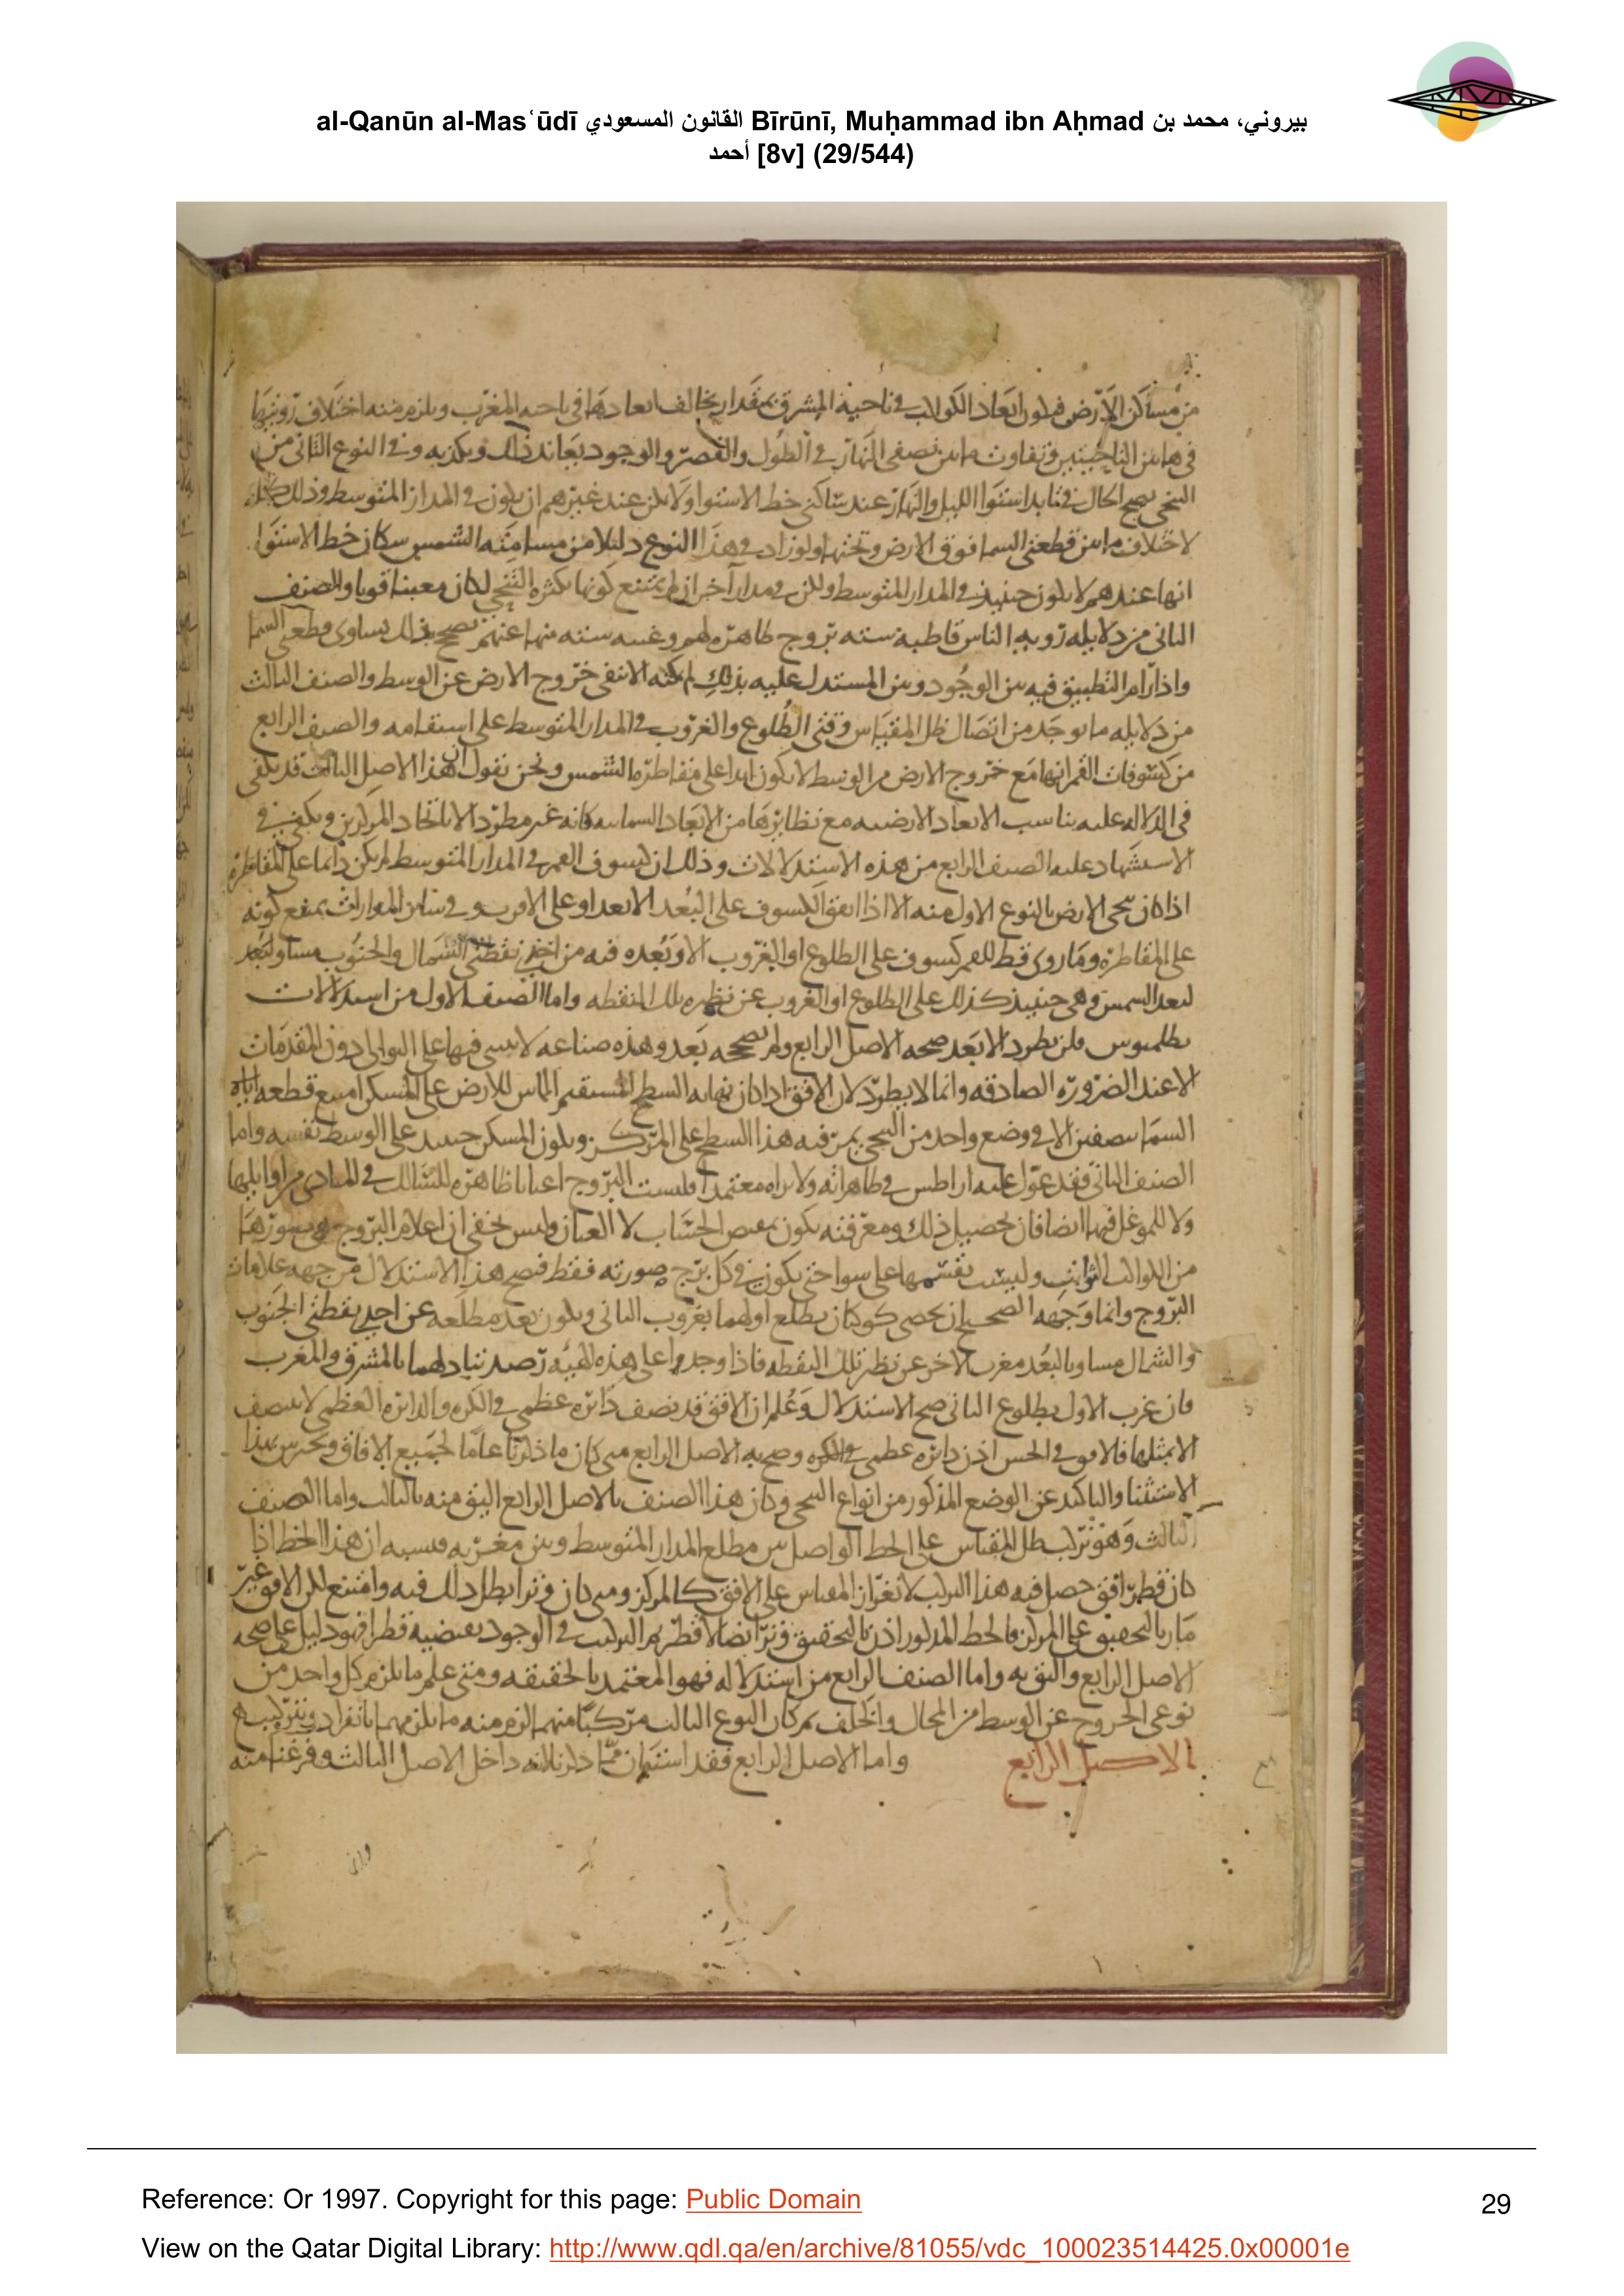 al-Qanūn al-Mas‘ūdī القانون المسعودي Bīrūnī, Muḥammad ibn Aḥmad بيروني، محمد بن
أحمد [8v] (29/544)
من مساكن الارض فيكون ابعاد الكواكب في ناحية المشرق بمقدار يخالف ابعادها في ناحيه المغرب ويلزم منه اختلاف رؤيتها
في هاتين الناحيتين وتفاوت ما بين نصفي النهار في الطول والقصر والوجود يعاند ذلك ويكذبه وفي النوع الثاني من
التنحي يصح الحال في استوا الليل والنهار عند ساكني خط الاستوا ولا يمكن عند غيرهم ان يكون في المدار المتوسط وذلك
لاختلاف ما بين قطعتي السما فوق الارض وتحتها ولو زاد في هذا النوع دليلا من مسامته الشمس سكان خط الاستوا
انها عندهم لا يكون حينيذ في المدار المتوسط ولكن في مدار آخر ان لم يمتنع كونها بكثره التنحي لكان معينا قويا والصنف
الثاني من دلايله رؤيه الناس قاطبة سته بروج ظاهره لهم وغيبه سته منها عنهم تصحح بذلك تساوي قطعتي السما
واذا رام التطبيق فيه بين الوجود وبين المستدل عليه بذلك لم يمكنه الا نفي خروج الارض عن الوسط والصنف الثالث
من دلايله ما يوجد من اتصال ظل المقياس وقتي الطلوع والغروب في المدار المتوسط على استقامه والصنف الرابع
من كسوفات القمر انها مع خروج الارض من الوسط لا يكون ابدا على مقاطره الشمس ونحن نقول ان هذا الاصل الثالث قد يكفي
في الدلاله عليه تناسب الابعاد الارضيه مع نظايرها من الابعاد السمائيه فانه غير مطرد الا باتحاد المركزين ويكفي في
الاستشهاد عليه الصنف الرابع من هذه الاستدلالات وذلك ان كسوف القمر في المدار المتوسط لم يكن دائما على المقاطرة
اذا كان تنحي الارض بالنوع الاول منه الا اذا اتفق الكسوف على البعد الابعد او على الاقرب وفي ساير المدارات يمتنع كونه
على المقاطرة وما روى قط للقمر كسوف على الطلوع او الغروب الا وبعده فيه من احدى نقطتي الشمال والجنوب مساو لبعد
لبعد الشمس وهي حينيذ كذلك على الطلوع او الغروب عن نظيره تلك النقطه واما الصنف الاول من استدلالات
بطلميوس فلن يطرد الا بعد صحه الاصل الرابع ولم نصححه بعد وهذه صناعه لا يبنى فيها على التوالي دون المقدمات
الا عند الضروره الصادقه وانما لا يطرد لان الافق اذا كان نهايه السطح المستقيم المماس للارض على المسكن امتنع قطعه اياه
السما بنصفين الا في وضع واحد من التنحي يمر فيه هذا السطح على المركز ويكون المسكن حينيذ على الوسط نفسه واما
الصنف الثاني فقد عول عليه اراطس في ظاهراته ولا نراه معتمدا فليست البروج اعيانا ظاهره للسالك في المبادي من اوايلها
ولا للموغل فيها ايضا فان تحصيل ذلك ومعرفته يكون بمقتضى الحساب لا العيان وليس يخفى ان اعلام البروج هي صورها
من الكواكب الثوابت وليست بقسمها على سوا حتى يكون في كل برج صورته فقط فيصح هذا الاستدلال من جهه علامات
البروج وانما وجهه الصحيح ان يحصى كوكبان يطلع اولهما بغروب الثاني ويكون بعد مطلعه عن احدى نقطتي الجنوب
والشمال مساويا لبعد مغرب الاخر عن نظير تلك النقطه فاذا وجدوا على هذه الهيئه رصد تبادلهما بالمشرق والمغرب
فان غرب الاول بطلوع الثاني صح الاستدلال وعلم ان الافق قد نصف دائره عظمى في الكره والدائره العظمى لا تنتصف
الا بمثلها فالافق في الحس اذن دائره عظمى في الكره وصح به الاصل الرابع متى كان ما ذكرنا عاما لجميع الافاق ونحترس بهذا
الاستثنا والتاكيد عن الوضع المذكور من انواع التنحي وكان هذا الصنف بالاصل الرابع اليق منه بالثالث واما الصنف
الثالث وهو تركب ظل المقياس على الخط الواصل بين مطلع المدار المتوسط وبين مغربه فبسببه ان هذا الخط اذا
كان قطر افق حصل فيه هذا التركب لان المقياس على الافق كالمركز ومتى كان وترا بطل ذلك فيه وامتنع لكن الافق غير
مار بالتحقيق على المركز فالخط المذكور اذن بالتحقيق وتر ايضا لا قطر ثم التركب في الوجود يقتضيه قطرا فهو دليل على صحه
الاصل الرابع واليق به واما الصنف الرابع من استدلاله فهو المعتمد بالحقيقه ومتى علم ما يلزم كل واحد من
نوعي الخروج عن الوسط من المحال والخلف ثم كان النوع الثالث مركبا منهما لزم منه ما يلزمهما بانفراد وتركيب
الاصل الرابع واما الاصل الرابع فقد استبان مما ذكرناه داخل الاصل الثالث وفرغنا منه
Reference: Or 1997. Copyright for this page: Public Domain
29
View on the Qatar Digital Library: http://www.qdl.qa/en/archive/81055/vdc_100023514425.0x00001e